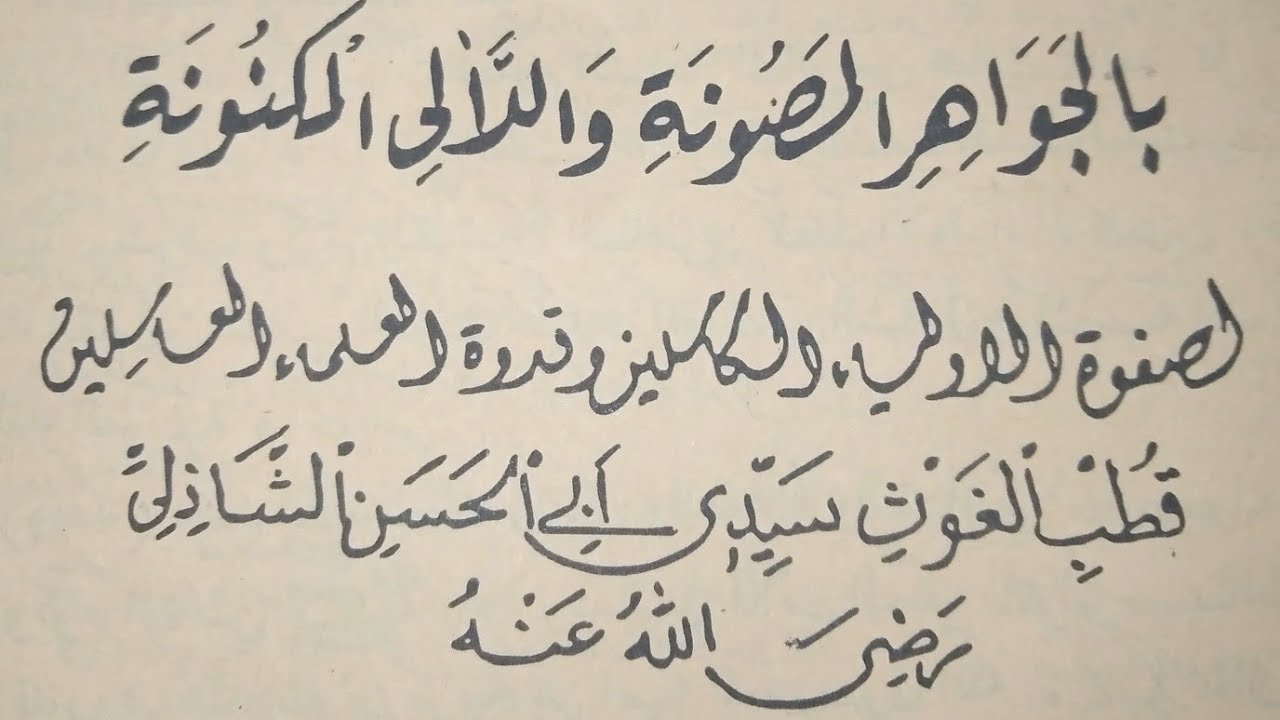 بالجَوَاهِرِ المَصُونَةِ وَاللَّآلِي الْمَكنُونَةِ
لصفوة الاولياء الكاملين وقدوة العلماء العاملين
قُطْبِ الْغَوْثِ سَيِّدِى أَبِي الْحَسَنِ الشَّاذِلِيِّ
رَضِىَ اللهُ عَنْهُ